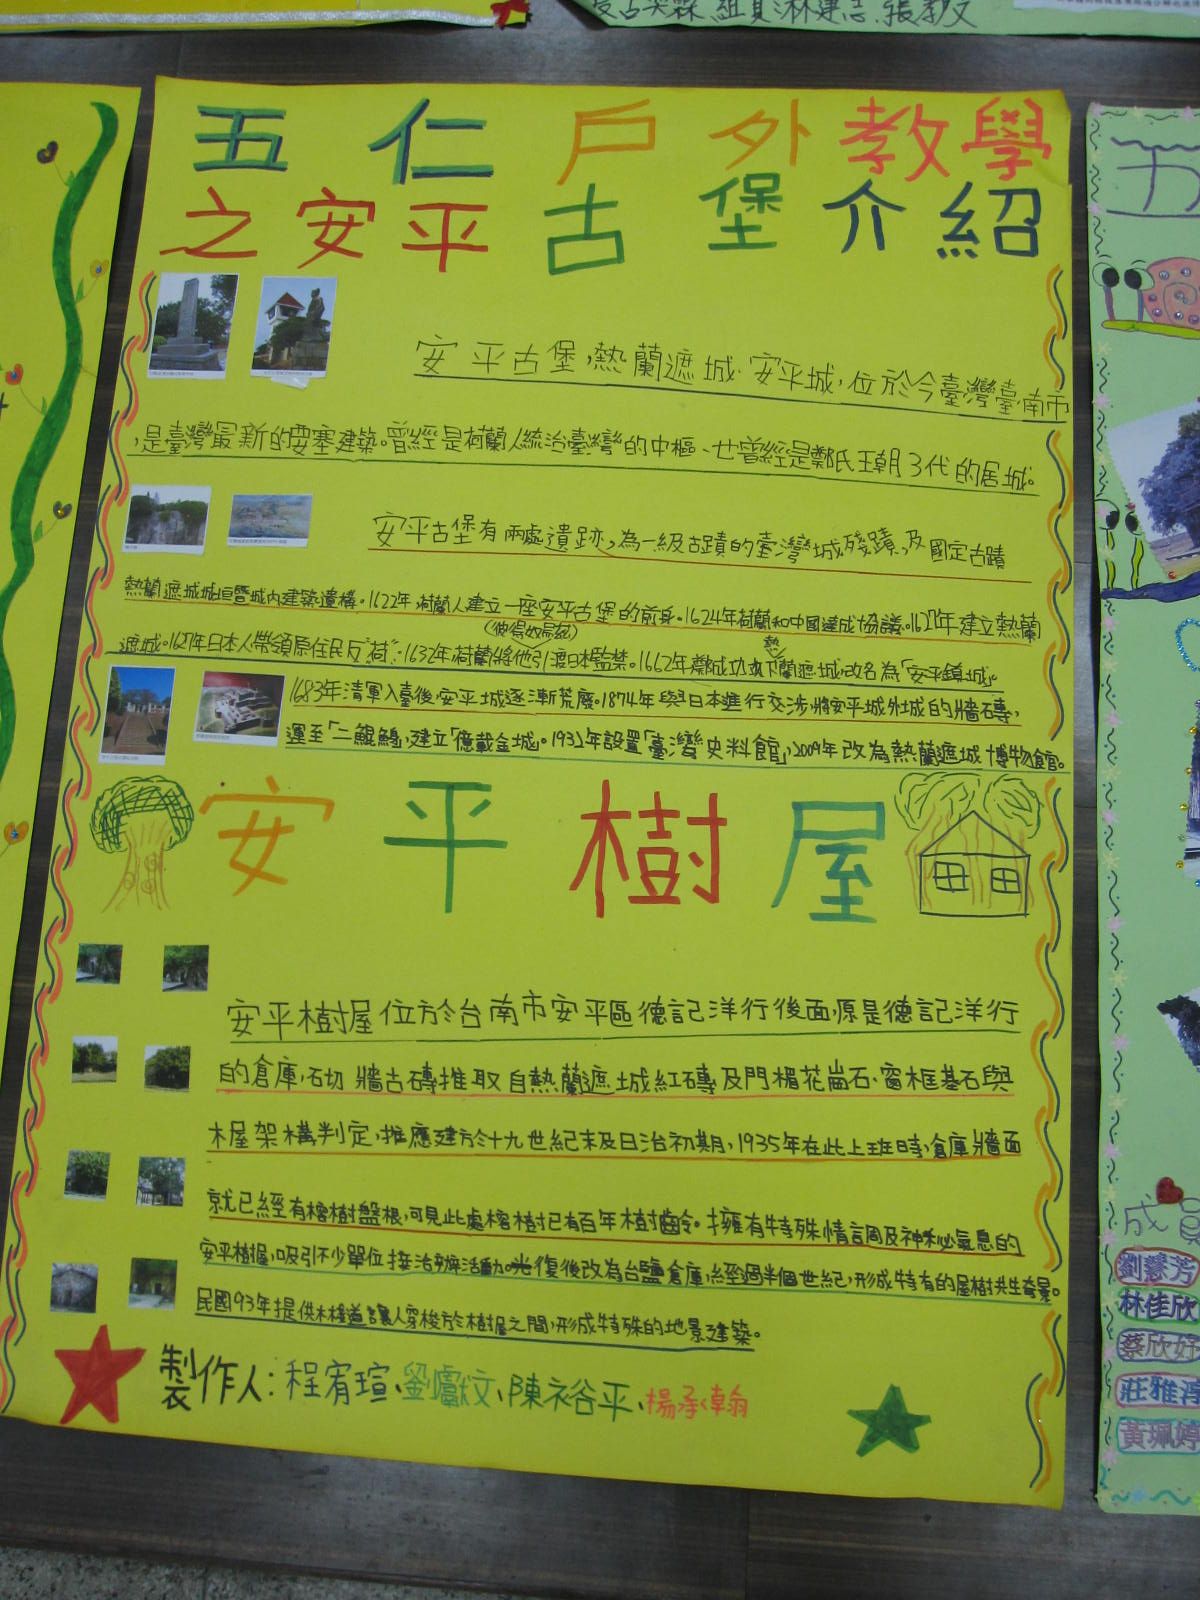 五仁戶外教學
之安平古堡介紹
安平古堡,熱蘭遮城、安平城,位於今臺灣臺南市
,是臺灣最新的要塞建築。曾經是荷蘭人統治臺灣的中樞、也曾經是鄭氏王朝3代的居城。
安平古堡有兩處遺跡,為一級古蹟的臺灣城殘蹟,及國定古蹟
熱蘭遮城城垣暨城內建築遺構。1622年,荷蘭人建立一座安平古堡的前身。1624年荷蘭和中國達成協議。1627年建立熱蘭
遮城。1627年日本人帶領原住民反"荷"。1632年荷蘭將他引渡日本監禁。1662年鄭成功攻下熱蘭遮城,改名為「安平鎮城」。
1683年清軍入臺後,安平城逐漸荒廢。1874年與日本進行交涉,將安平城外城的牆磚,
運至「二鯤鯓」,建立「億載金城」。1932年設置「臺灣史料館」,2009年改為熱蘭遮城博物館。
安平樹屋
安平樹屋位於台南市安平區德記洋行後面,原是德記洋行
的倉庫,砌牆古磚推取自熱蘭遮城紅磚及門楣花崗石、窗框基石與
木屋架構判定,推應建於十九世紀末及日治初期,1935年在此上班時,倉庫牆面
就已經有榕樹盤根,可見此處榕樹已有百年樹齡。擁有特殊情調及神秘氣息的
安平樹屋,吸引不少單位接洽辦活動。光復後改為台鹽倉庫,經過半個世紀,形成特有的屋樹共生奇景。
民國93年提供木棧道讓人穿梭於樹屋之間,形成特殊的地景建築。
製作人:程宥瑄、劉虞炆、陳衸平、楊承翰
成員
劉慧芳
林佳欣
蔡欣妤
莊雅淳
黃珮婷